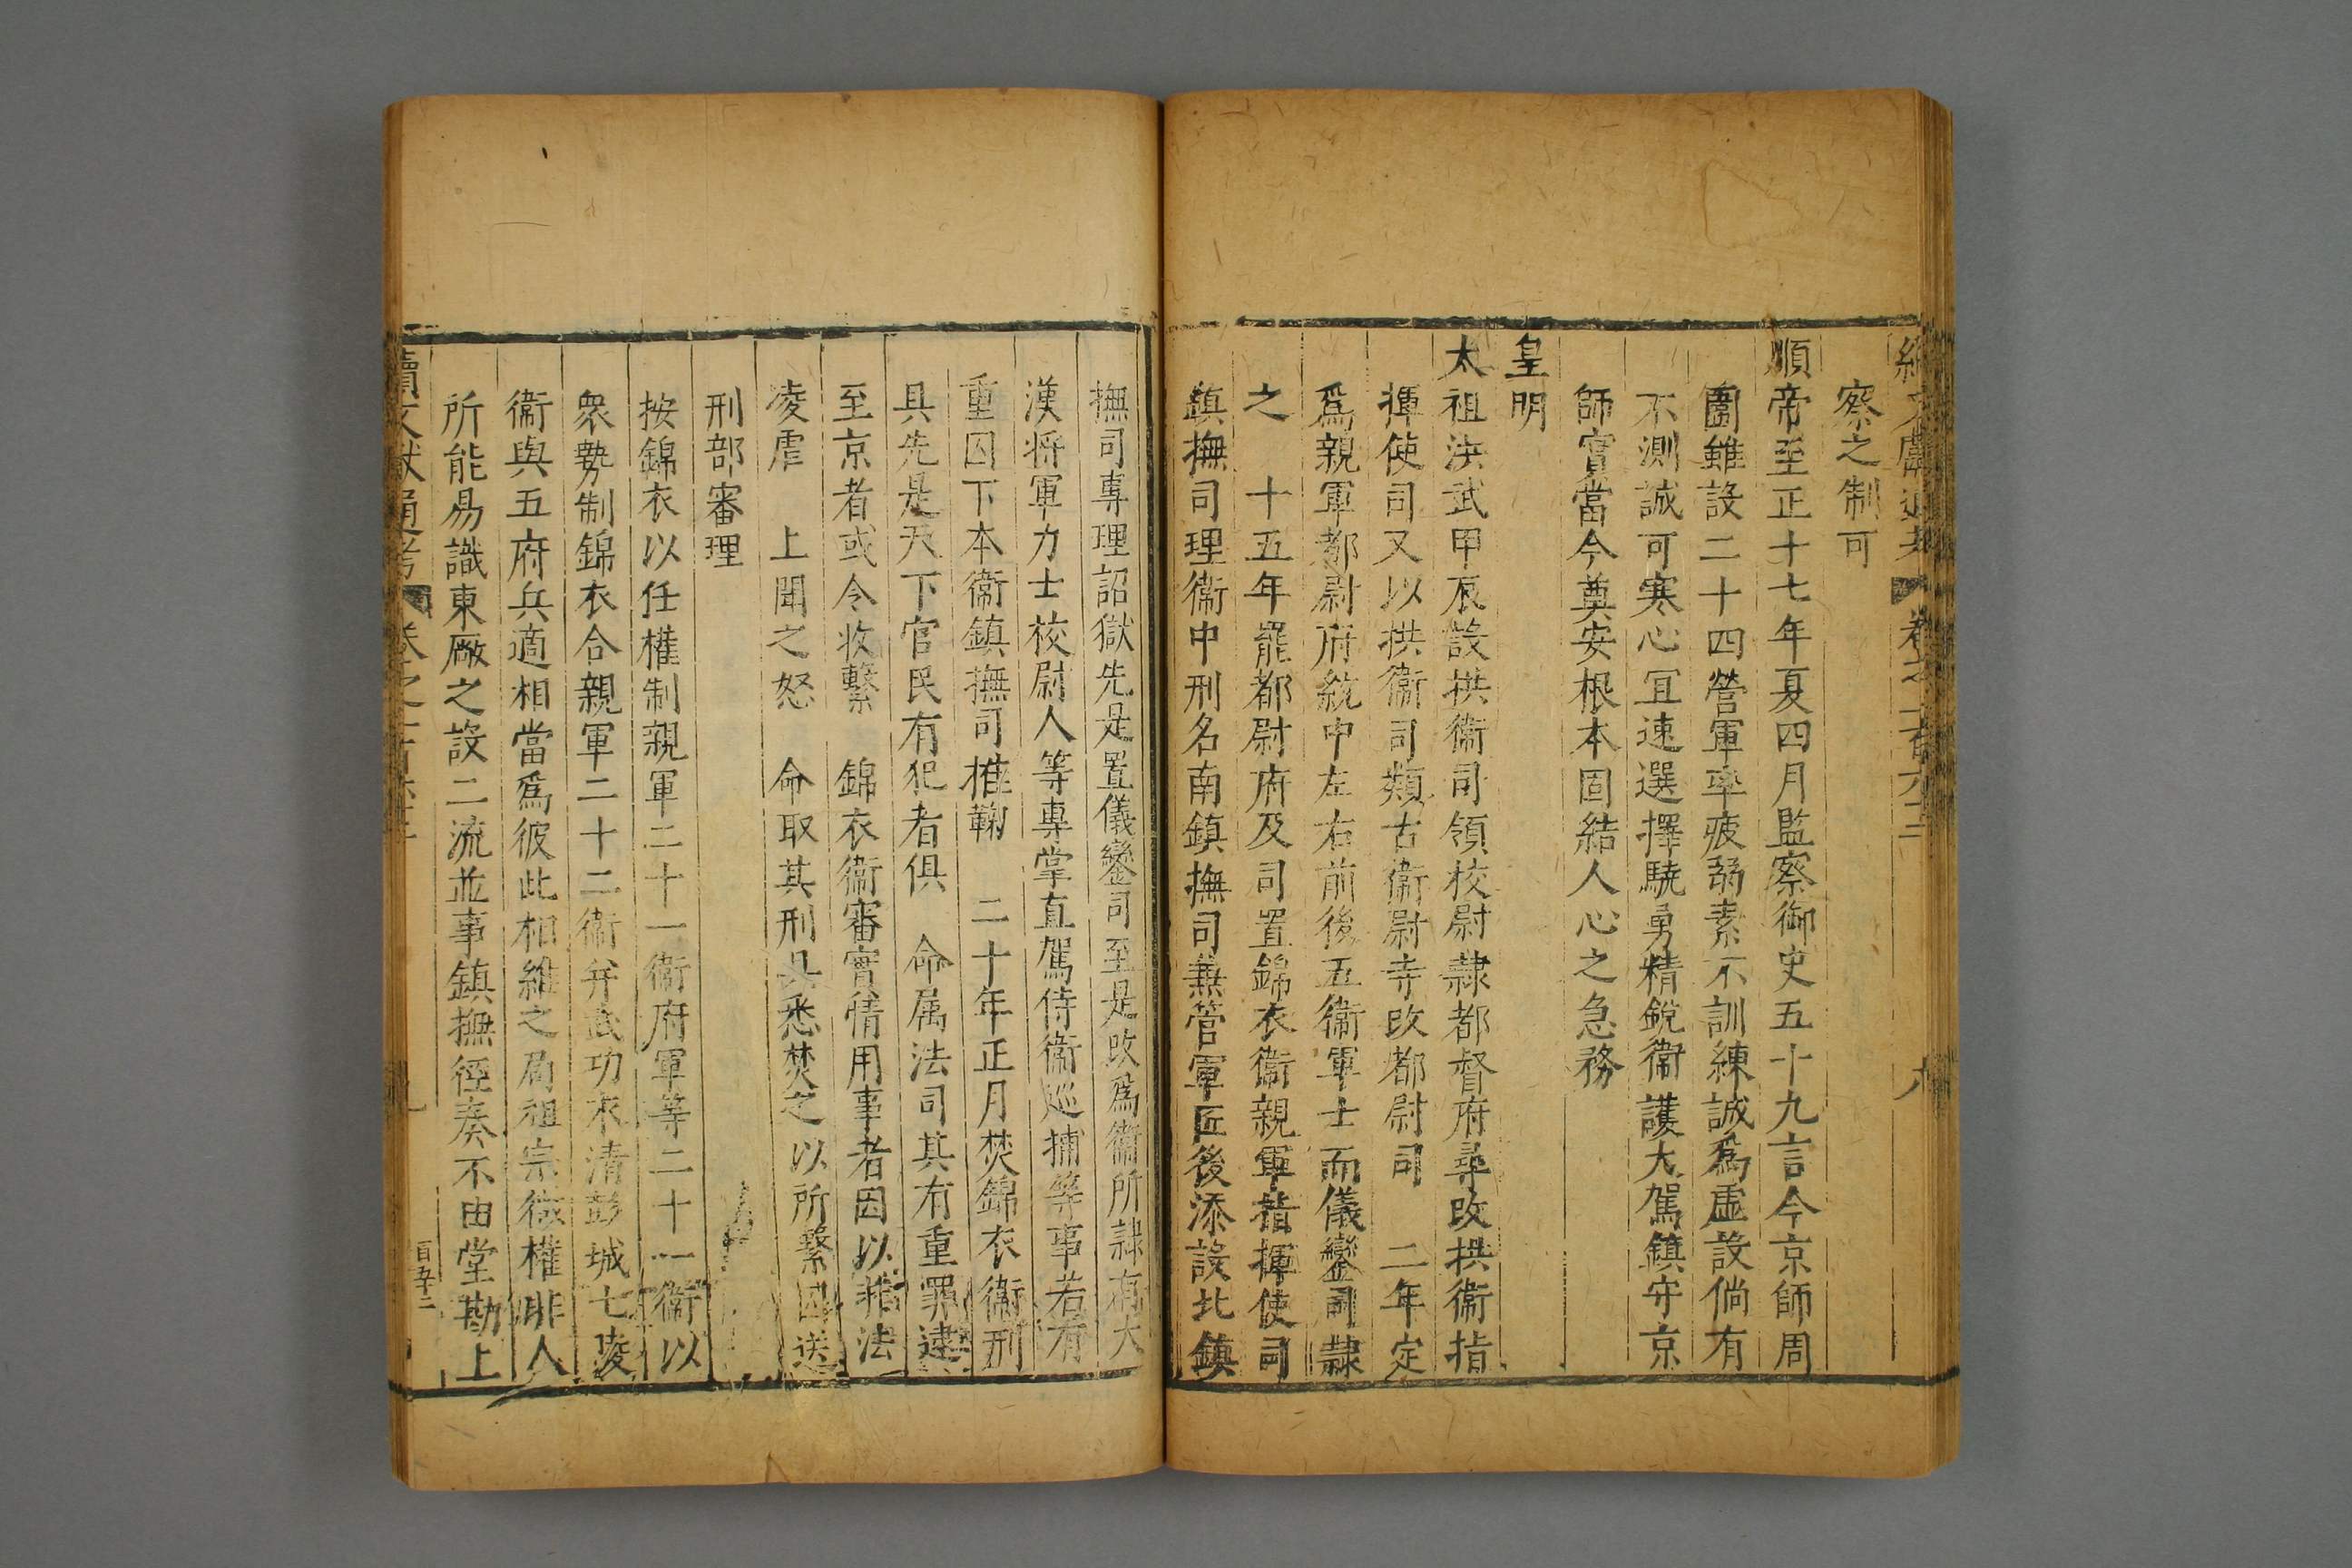 續文獻通考 卷之一百六十二 八
察之制可
順帝至正十七年夏四月監察御史五十九言今京師周
圍雖設二十四營軍卒疲弱素不訓練誠爲虛設倘有
不測誠可寒心冝速選擇驍勇精銳衞護大駕鎮守京
師實當今奠安根本固結人心之急務
皇明
太祖洪武甲辰設拱衞司領校尉隷都督府尋改拱衞指
揮使司又以拱衞司類古衞尉寺改都尉司 二年定
爲親軍都尉府統中左右前後五衞軍士而儀鑾司隷
之 十五年罷都尉府及司置錦衣衞親軍指揮使司
鎮撫司理衞中刑名南鎮撫司兼管軍匠後添設北鎮
撫司專理詔獄先是置儀鑾司至是改爲衞所隷有大
漢將軍力士校尉人等專掌直駕侍衞巡捕等事若有
重囚下本衞鎮撫司推鞫 二十年正月焚錦衣衞刑
具先是天下官民有犯者俱 命属法司其有重罪逮
至京者或令收繫 錦衣衞審實情用事者因以非法
凌虐 上聞之怒 命取其刑具悉焚之以所繫囚送
刑部審理
按錦衣以任權制親軍二十一衞府軍等二十一衞以
衆勢制錦衣合親軍二十二衞幷武功永清彭城七陵
衞與五府兵適相當爲彼此相維之局祖宗微權非人
所能易識東厰之設二流並事鎮撫徑奏不由堂勘上
續文獻通考 卷之一百 百五十二